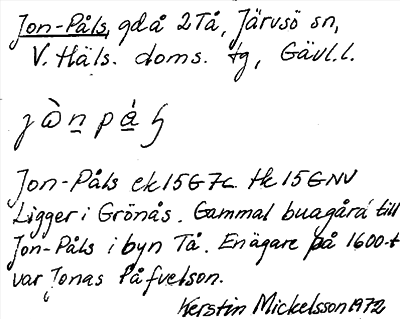 Jon-Påls, gd å 2 Tå, Järvsö sn,
V. Häls. doms. tg, Gävl. l.
Jon-Påls ek 15G7c tk 15GNV
Ligger i Grönås. Gammal buagård till
Jon-Påls i byn Tå. En ägare på 1600-t
var Jonas Påfvelson.
Kerstin Mickelsson 1972